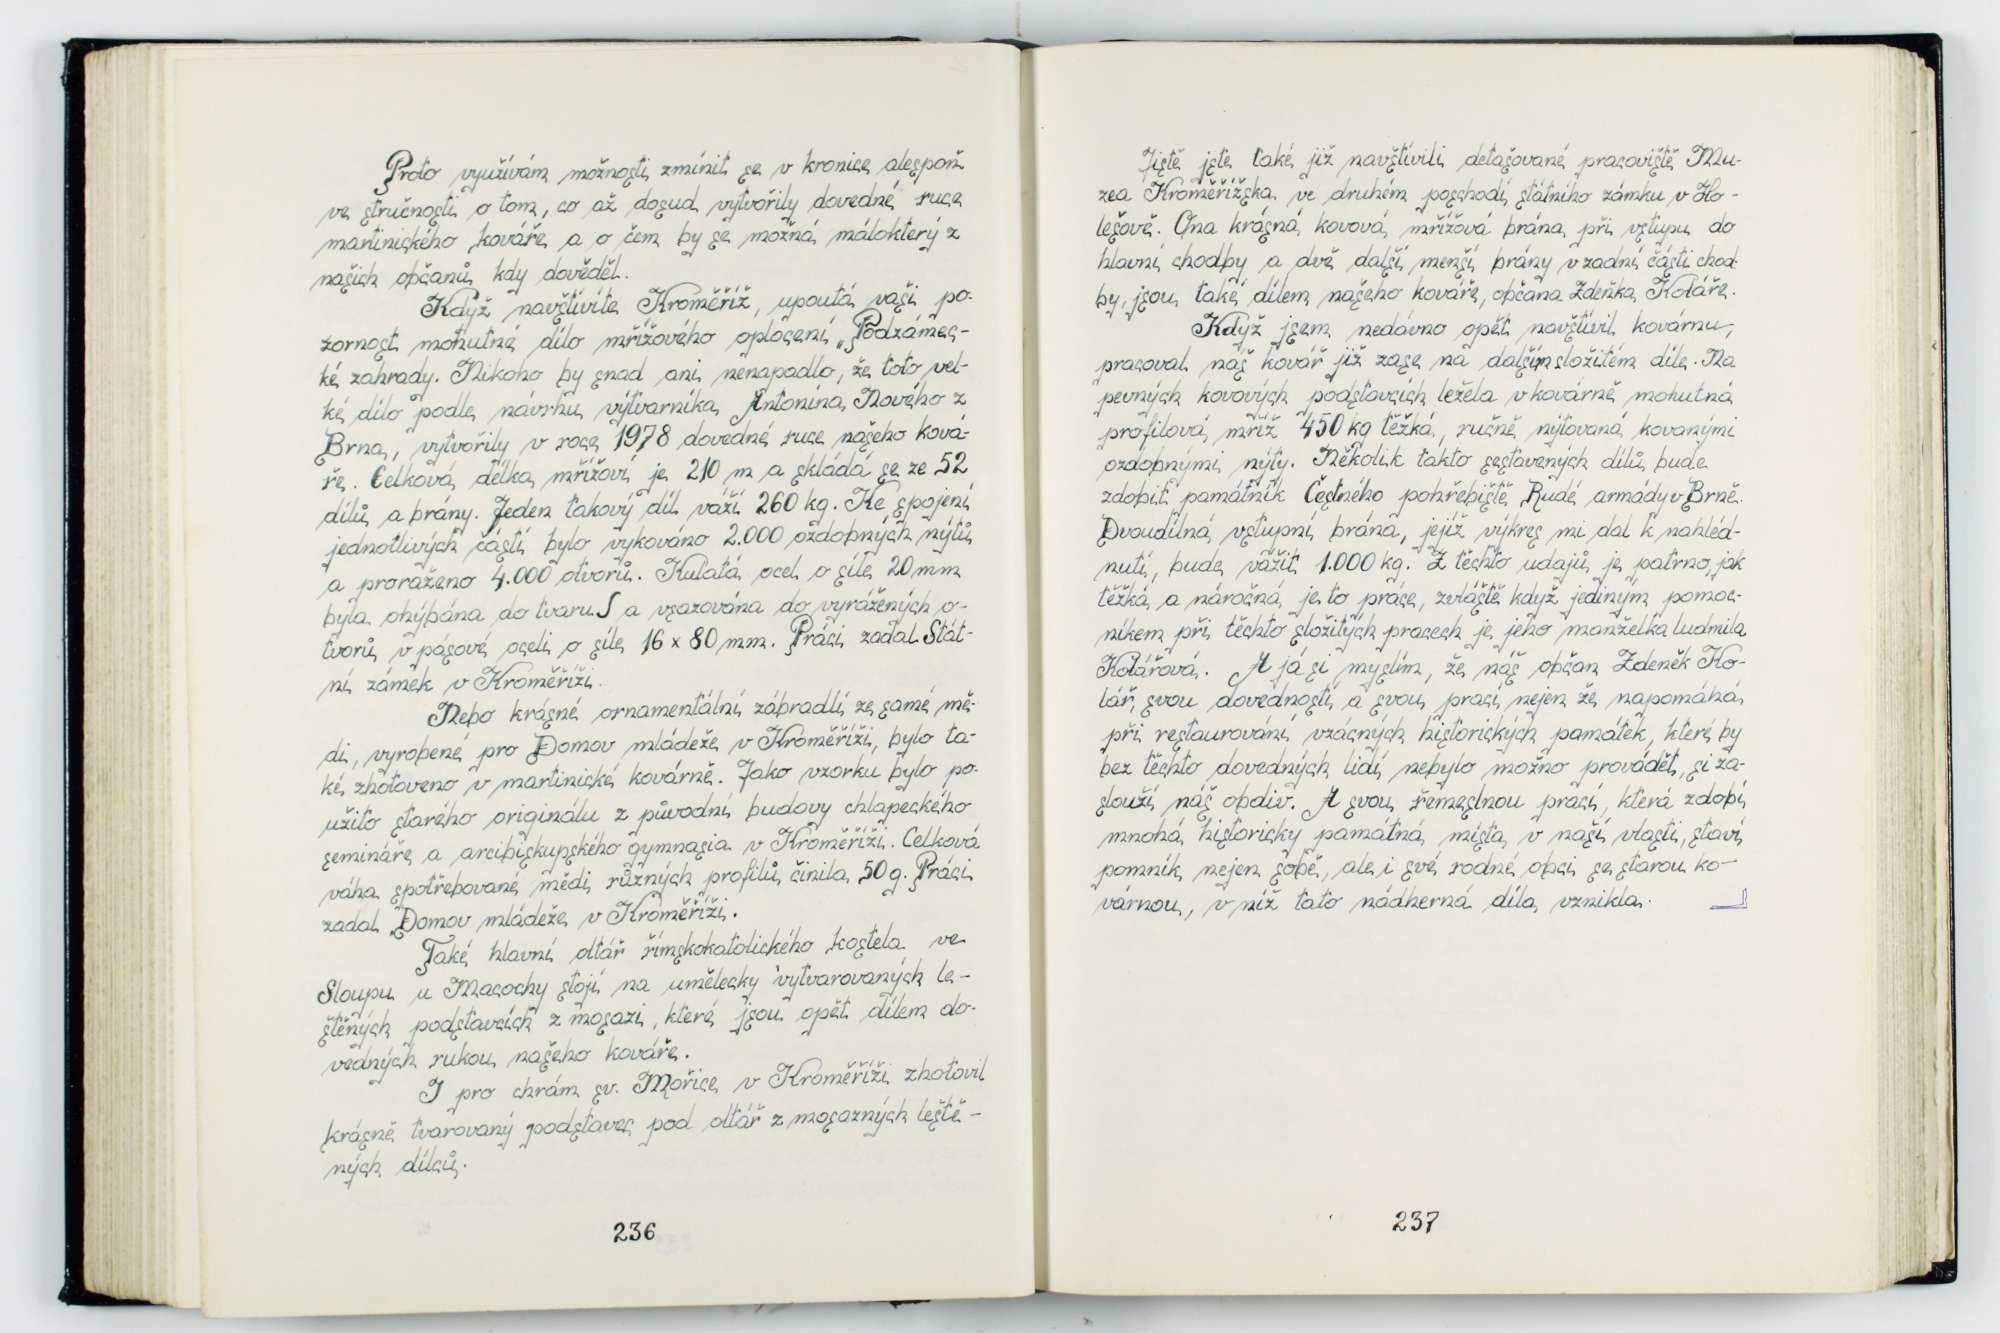 Proto využívám možnosti zmínit se v kronice alespoň
ve stručnosti o tom, co až dosud vytvořily dovedné ruce
martinického kováře a o čem by se možná málokterý z
našich občanů kdy dověděl.
Když navštívíte Kroměříž, upoutá vaši po-
zornost mohutné dílo mřížového oplocení „Podzámec-
ké zahrady. Nikoho by snad ani nenapadlo, že toto vel-
ké dílo podle návrhu výtvarníka Antonína Nového z
Brna, vytvořily v roce 1978 dovedné ruce našeho ková-
ře. Celková délka mřížoví je 210 m a skládá se ze 52
dílů a brány. Jeden takový díl váží 260 kg. Ke spojení
jednotlivých částí bylo vykováno 2.000 ozdobných nýtů
a proraženo 4.000 otvorů. Kulatá ocel o síle 20 mm
byla ohýbána do tvaru S a vsazována do vyražených o-
tvorů v pásové oceli o síle 16 x 80 mm. Práci zadal Stát-
ní zámek v Kroměříži.
Nebo krásné ornamentální zábradlí ze samé mě-
di, vyrobené pro Domov mládeže v Kroměříži, bylo ta-
ké zhotoveno v martinické kovárně. Jako vzorku bylo po-
užito starého originálu z původní budovy chlapeckého
semináře a arcibiskupského gymnasia v Kroměříži. Celková
váha spotřebované mědi různých profilů činila 50 g. Práci
zadal Domov mládeže v Kroměříži.
Také hlavní oltář římskokatolického kostela ve
Sloupu u Macochy stojí na umělecky vytvarovaných le-
štěných podstavcích z mosazi, které jsou opět dílem do-
vedných rukou našeho kováře.
I pro chrám sv. Mořice v Kroměříži zhotovil
krásně tvarovaný podstavec pod oltář z mosazných leště-
ných dílců.
236
Jistě jste také již navštívili detašované pracoviště Mu-
zea Kroměřížska ve druhém poschodí státního zámku v Ho-
lešově. Ona krásná kovová mřížová brána při vstupu do
hlavní chodby a dvě další menší brány v zadní části chod-
by, jsou také dílem našeho kováře, občana Zdeňka Koláře.
Když jsem nedávno opět navštívil kovárnu,
pracoval náš kovář již zase na dalším složitém díle. Na
pevných kovových podstavcích ležela v kovárně mohutná
profilová mříž 450 kg těžká, ručně nýtovaná kovanými
ozdobnými nýty. Několik takto sestavených dílů bude
zdobit památník Čestného pohřebiště Rudé armády v Brně.
Dvoudílná vstupní brána, jejíž výkres mi dal k nahléd-
nutí, bude vážit 1.000 kg. Z těchto udajů je patrno, jak
těžká a náročná je to práce, zvláště když jediným pomoc-
níkem při těchto složitých pracech je jeho manželka Ludmila
Kolářová. A já si myslím, že náš občan Zdeněk Ko-
lář, svou dovedností a svou prací nejen že napomáhá
při restaurování vzácných historických památek, které by
bez těchto dovedných lidí nebylo možno provádět, si za-
slouží náš obdiv. A svou řemeslnou prací, která zdobí
mnohá historicky památná místa v naší vlasti, staví
pomník nejen sobě, ale i své rodné obci se starou ko-
várnou, v níž tato nádherná díla vznikla.
237